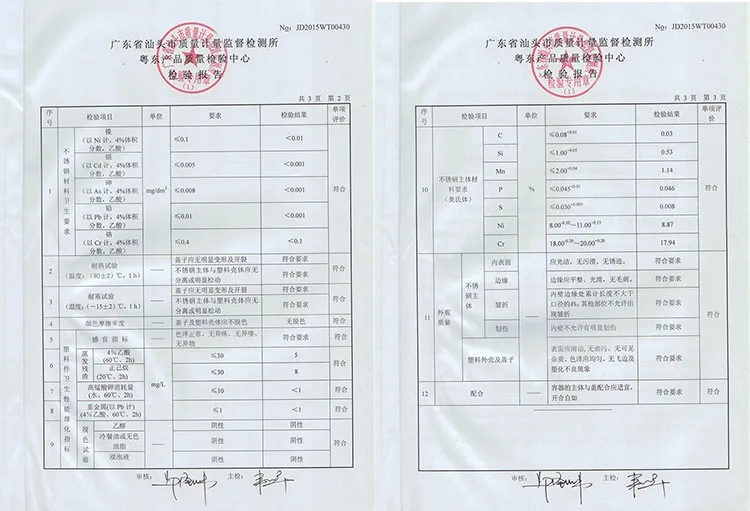 №: JD2015WT00430
广东省汕头市质量计量监督检测所
粤东产品质量检验中心
检验报告
检验专用章
(1)
共 3 页 第 2 页
序号 检验项目 单位 要求 检验结果 单项评价
1 不锈钢材料卫生要求 镍(以 Ni 计，4%体积分数，乙酸) mg/dm² ≤0.1 <0.01 符合
镉(以 Cd 计，4%体积分数，乙酸) ≤0.005 <0.001
砷(以 As 计，4%体积分数，乙酸) ≤0.008 <0.001
铅(以 Pb 计，4%体积分数，乙酸) ≤0.01 <0.001
铬(以 Cr 计，4%体积分数，乙酸) ≤0.4 <0.1
2 耐热试验(温度：(80±2)℃，1 h) —— 盖子应无明显变形及开裂 符合要求 符合
不锈钢主体与塑料壳体应无分离或明显松动 符合要求
3 耐寒试验(温度：(－15±2)℃，1 h) —— 盖子应无明显变形及开裂 符合要求 符合
不锈钢主体与塑料壳体应无分离或明显松动 符合要求
4 颜色摩擦牢度 —— 盖子及塑料壳体应不脱色 无脱色 符合
5 塑料件卫生性能理化指标 感官指标 —— 色泽正常，无异味、无异嗅，无异物 符合要求 符合
6 蒸发残渣 4%乙酸(60℃，2h) mg/L ≤30 5 符合
正己烷(20℃，2h) ≤30 8
7 高锰酸钾消耗量(水，60℃，2h) ≤10 <1 符合
8 重金属(以 Pb 计)(4%乙酸，60℃，2h) ≤1 <1 符合
9 脱色试验 乙醇 —— 阴性 阴性 符合
冷餐油或无色油脂 阴性 阴性
浸泡液 阴性 阴性
审核： 主检：
№: JD2015WT00430
广东省汕头市质量计量监督检测所
粤东产品质量检验中心
检验报告
检验专用章
(1)
共 3 页 第 3 页
序号 检验项目 单位 要求 检验结果 单项评价
10 不锈钢主体材料要求(奥氏体) C % ≤0.08+0.01 0.03 符合
Si ≤1.00+0.05 0.53
Mn ≤2.00+0.04 1.14
P ≤0.045+0.01 0.046
S ≤0.030+0.005 0.008
Ni 8.00-0.10～11.00+0.15 8.87
Cr 18.00-0.20～20.00+0.20 17.94
11 外观质量 不锈钢主体 内表面 —— 应光洁，无污渍、无锈迹。 符合要求 符合
边缘 边缘应平整、光滑，无毛刺。 符合要求
皱折 内壁边缘处累计长度不大于口径的4%，其他部位不允许出现皱折 符合要求
划伤 内壁不允许有明显划伤 符合要求
塑料外壳及盖子 表面应清洁，无油污、无可见杂质、色泽应均匀，无飞边及塑化不良现象 符合要求
12 配合 —— 容器的主体与盖配合应适宜，开合自如 符合要求 符合
审核： 主检：